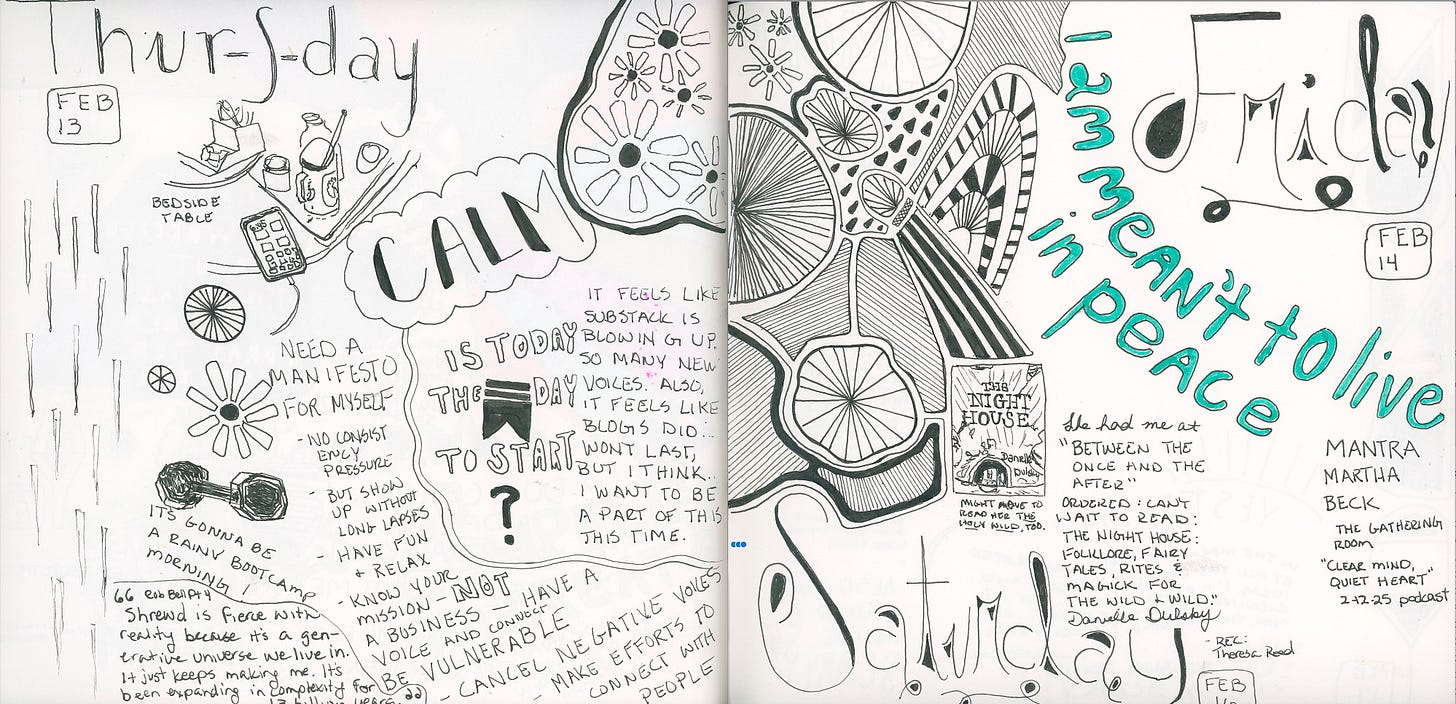 Thur-s-day
FEB
13
BEDSIDE
TABLE
CALM
NEED A
MANIFESTO
FOR MYSELF
- NO CONSIST
ENCY
PRESSURE
- BUT SHOW
UP WITHOUT
LONG LAPSES
- HAVE FUN
+ RELAX
- KNOW YOUR
MISSION - NOT
A BUSINESS - HAVE A
VOICE AND CONNECT
BE VULNERABLE
- CANCEL NEGATIVE VOICES
- MAKE EFFORTS TO
CONNECT WITH
PEOPLE
IS TODAY
THE DAY
TO START
?
IT FEELS LIKE
SUBSTACK IS
BLOWING UP.
SO MANY NEW
VOICES. ALSO,
IT FEELS LIKE
BLOGS DID...
WONT LAST,
BUT I THINK..
I WANT TO BE
A PART OF THIS
THIS TIME.
ITS GONNA BE
A RAINY BOOTCAMP
MORNING!
Rob Bell pt 4
"Shrewd is fierce with
reality because it's a gen-
erative universe we live in.
It just keeps making me. Its
been expanding in complexity for
13 billion years."
Friday!
FEB
14
I am meAN't to live
in peAce
THE
NIGHT
HOUSE
Danielle
Dulsky
MIGHT HAVE TO
READ HER THE
HOLY WILD, TOO.
She had me at
"BETWEEN THE
ONCE AND THE
AFTER"
ORDERED: CANT
WAIT TO READ:
THE NIGHT HOUSE:
FOLKLORE, FAIRY
TALES, RITES &
MAGICK FOR
THE WILD & WILD."
Danielle Dulsky
- REC:
Theresa Reed
MANTRA
MARTHA
BECK
THE GATHERING
ROOM
"CLEAR MIND,
QUIET HEART"
2-12-25 podcast
Saturday
FEB